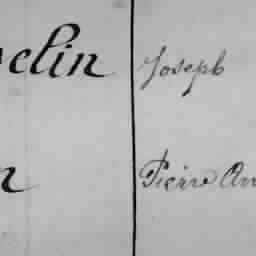 elin Joseph
n Pierre An